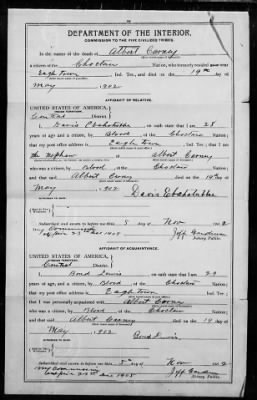 DEPARTMENT OF THE INTERIOR.
COMMISSION TO THE FIVE CIVILIZED TRIBES.
In the matter of the death of Albert
a citizen of the Choctaw Nation, who formerly resided
Eagle Town Ind. Ter., and died on the 19th day of
May, 1902
AFFIDAVIT OF RELATIVE.
UNITED STATES OF AMERICA,
INDIAN TERRITORY,
Central District.
I, Davis on oath state that I am 28
years of age and a citizen, by Blood of the Choctaw Nation;
that my post office address is Eagle Town, Ind. Ter.; that I am
the nephew of Albert
who was a citizen, by Blood of the Choctaw Nation;
and that said Albert died on the day of
May, 1902
Davis
Subscribed and sworn to before me this 8 day of Nov 1902
my commission
Jeff Gardner
Notary Public.
AFFIDAVIT OF ACQUAINTANCE.
UNITED STATES OF AMERICA,
INDIAN TERRITORY,
Central District.
I, Bond Lewis, on oath state that I am 23
years of age, and a citizen by Blood of the Choctaw Nation;
that my post office address is Eagle Town, Ind. Ter.;
that I was personally acquainted with Albert
who was a citizen, by Blood of the Choctaw Nation;
and that said Albert died on the 19 day of
May, 1902
Bond Lewis
Subscribed and sworn to before me this 8th day of Nov 1902
my commission
Jeff Gardner
Notary Public.